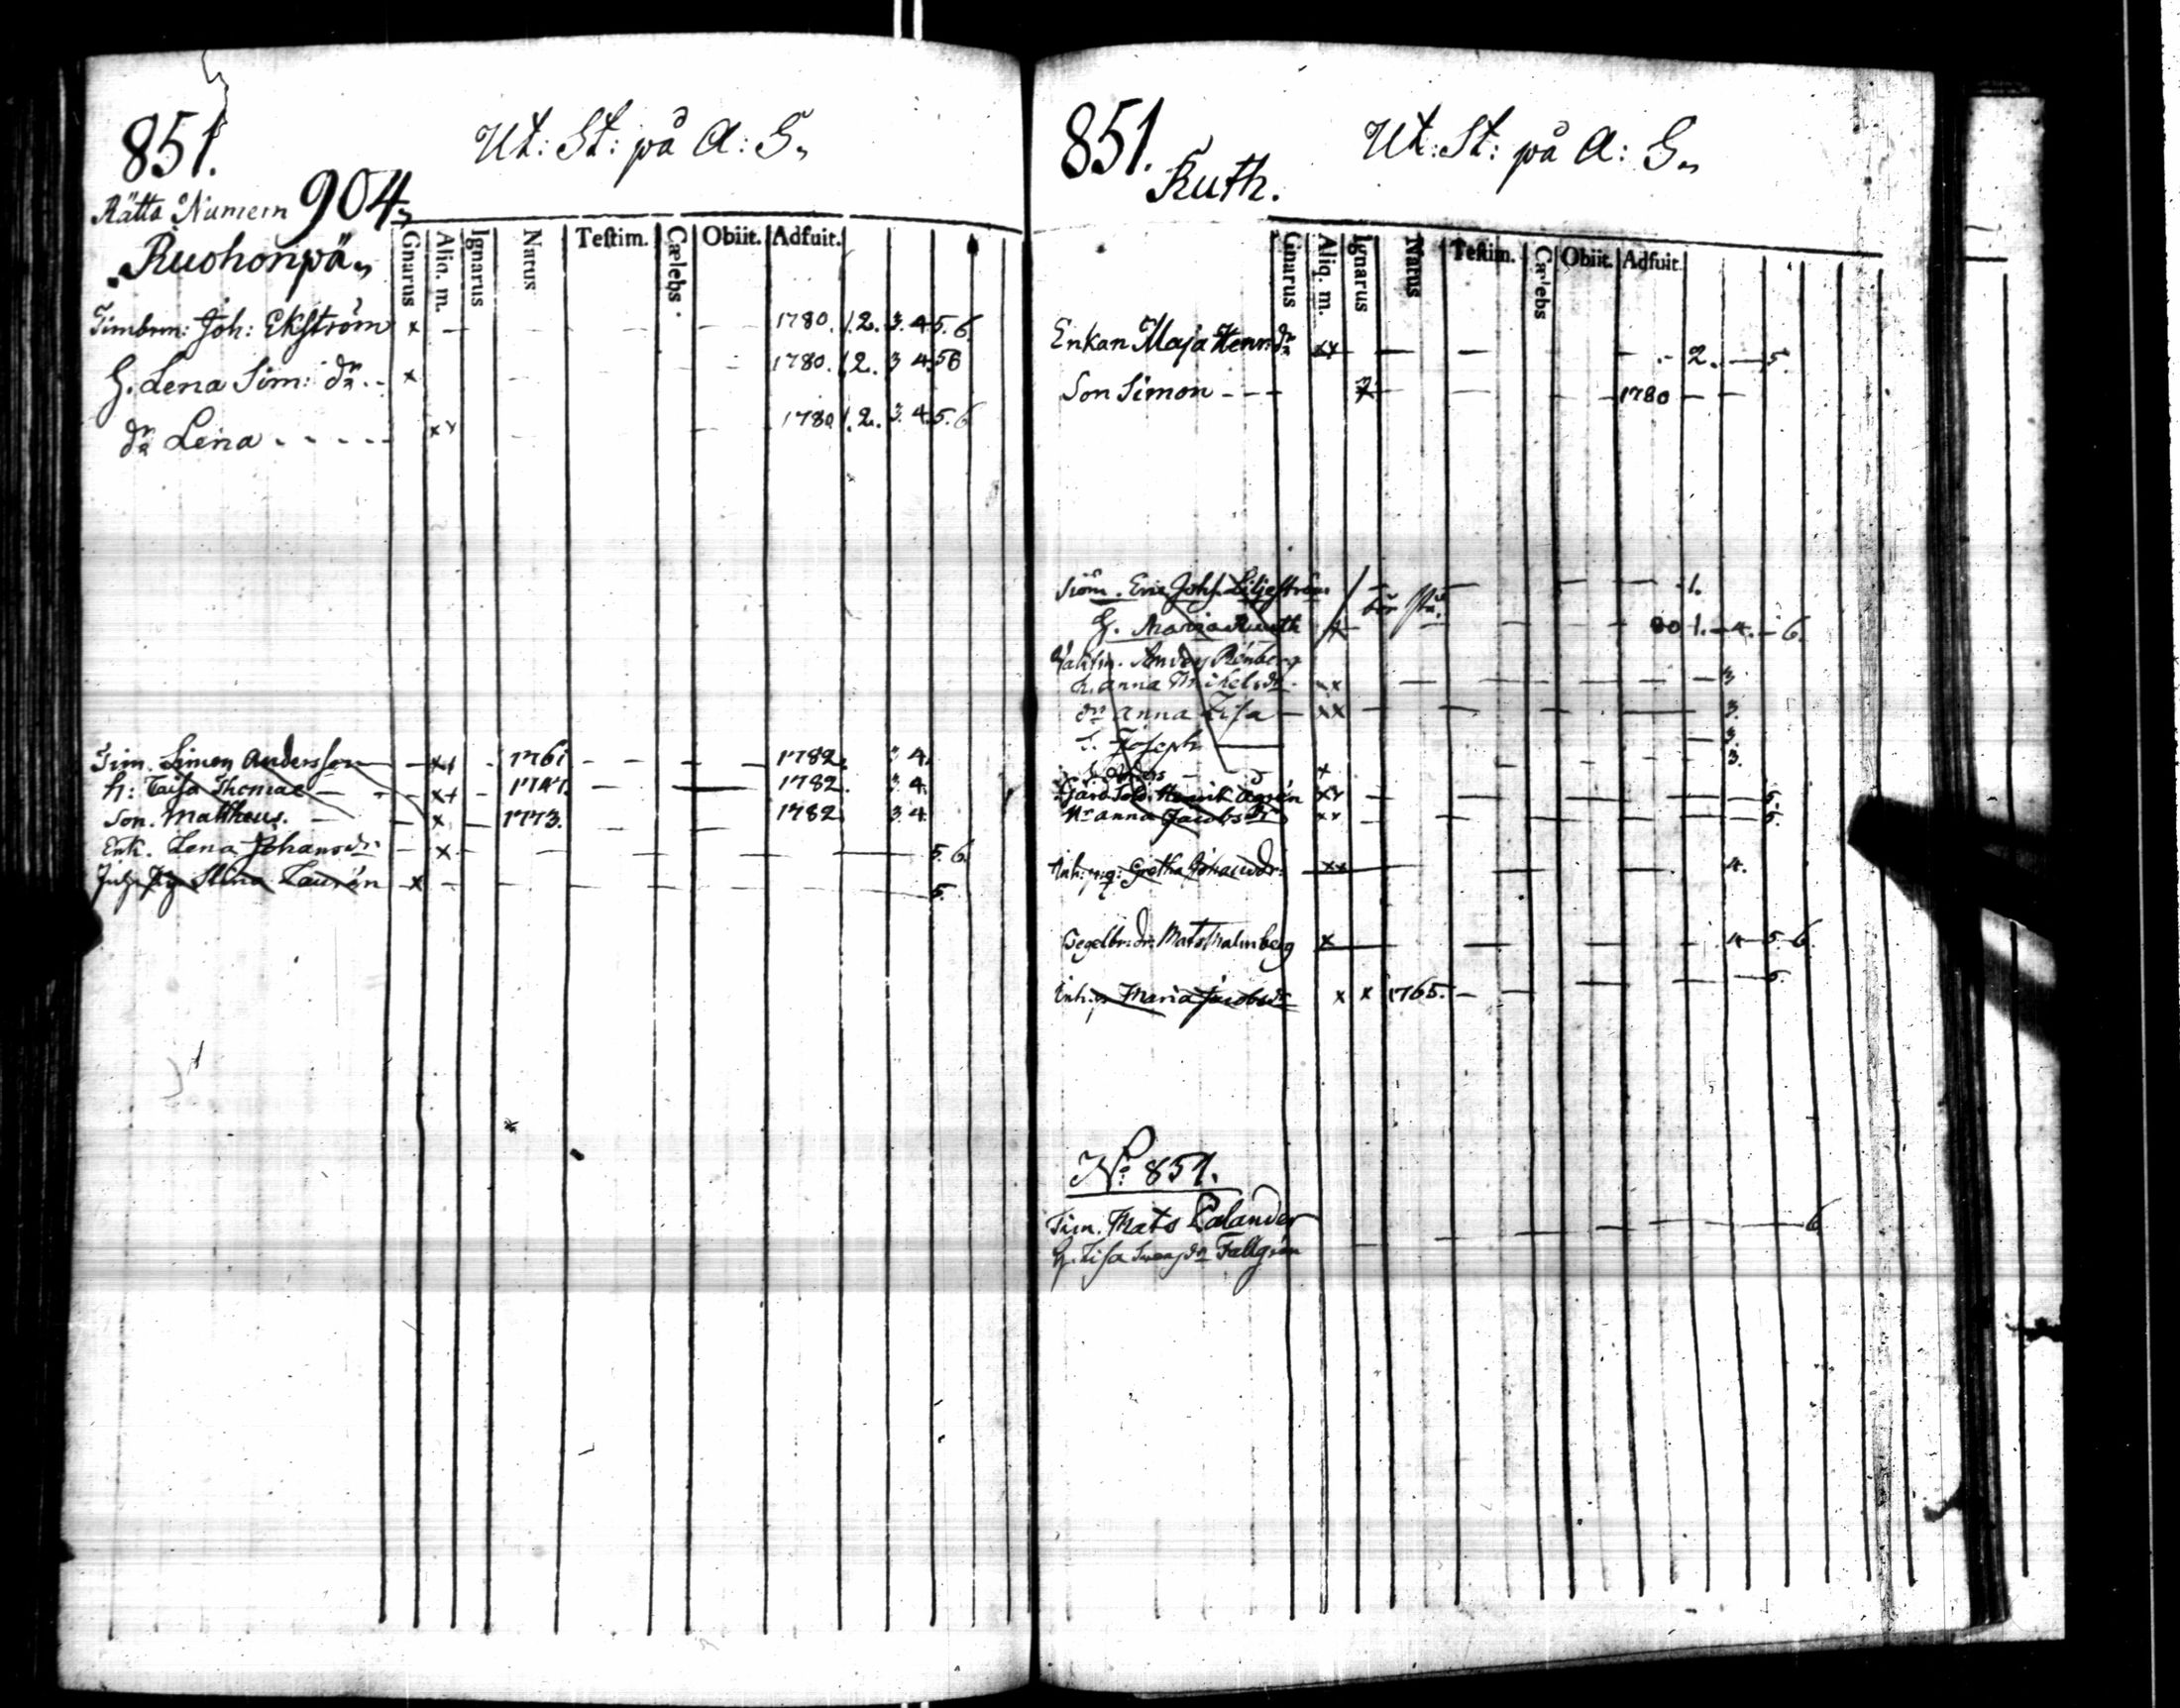 851. Ut: St: på A: G.
Rätta Numern 904
Ruohonpä
Gnarus Aliq. m. Ignarus Natus Testim. Cælebs. Obiit. Adfuit.
Timbrm: Joh: Ekström x — — — 1780. 1. 2. 3. 4. 5. 6.
H. Lena Sim: dr. x — — 1780. 1. 2. 3 4. 5 6
dr Lena - - - - - xx — — 1780 1. 2. 3. 4. 5. 6
Tim. Simon Andersson — xx - 1761 - - — — 1782. 3 4.
H: Caisa Thomae — xx - 1747. — — — 1782. 3 4.
Son. Mattheus. — — x — 1773. — — 1782 3. 4
Enk. Lena Johansdr. — x — — — — — — — 5. 6.
Stina Laurén x — — — — — — 5.
851. Ut: St: på A: G.
Ruth.
Gnarus Aliq. m. Ignarus Natus Testim. Cælebs Obiit. Adfuit.
Enkan Maja Henr: dr xx — — — 2. — 5.
Son Simon - - - x — — — — 1780 — —
Eric Johs. Liljeström — — — — 1.
bör stå
H. Maria Ruuth — — — — 80 1. — 4. — 6.
Anders Rönberg
h. Anna Michelsdr. xx — — — — — — 3
dr Anna Lisa — xx — — — — — 3.
S. Joseph — — 3.
x — — — 3.
Henrik Agrén xx — — — — — — 5.
Hr Anna Jacobsdr xx — — — — — — 5.
Inh: pig: Gretha Johansdr: xx — — — — — 4.
Mats Malmberg x — — — — — 4 5. 6.
Inh: Maria Jacobsdr x x 1765. — — — — — 5.
No: 851.
Tim. Mats Palander — — — — — 6
H. Lisa Svensdr Fallgrén —